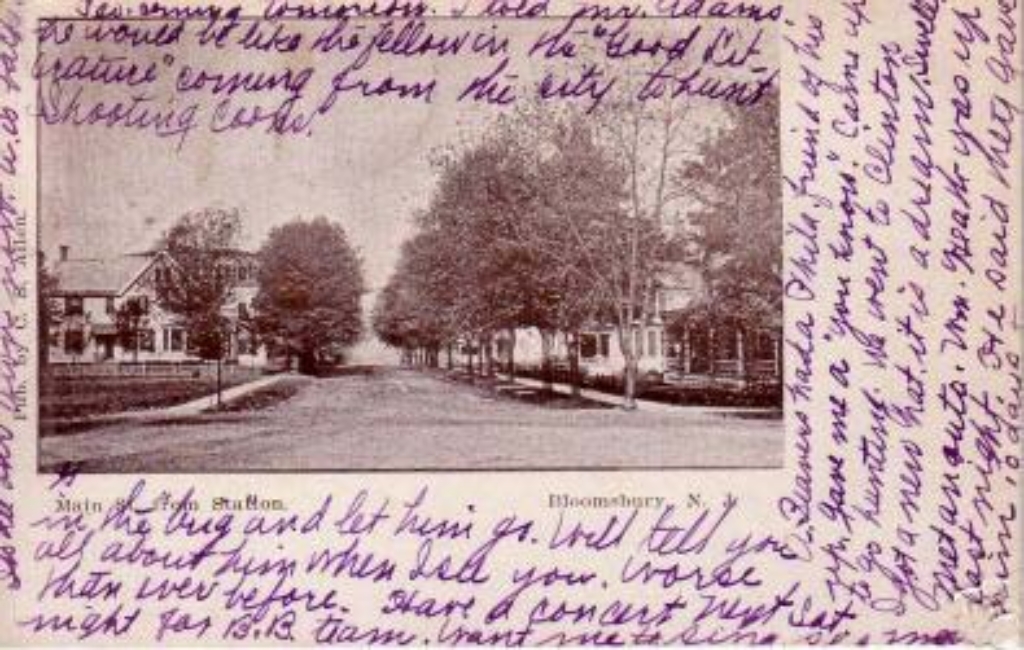 coming tomorrow. I told Mr. Adams
he would be like the fellow in the "Good Lit
erature" coming from the city to hunt
shooting cows.
Pub. by C. B. Allen.
Main St. from Station.
Bloomsbury, N. J.
in the bug and let him go. Will tell you
all about him when I see you. Worse
than ever before. Have a concert next Sat
night for B.B. team. Want me to sing
Beavers had a Phila friend of his
up. Gave me a "you know". Came up
to go hunting. We went to Clinton
I got a new hat. it is a dream. Swell
met an auto. Wm. was up
last night. He said they gave
him 10 days